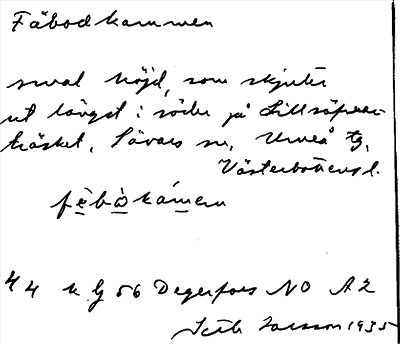 Fäbodkammen
smal höjd, som skjuter
ut längst i söder på Lillsäfvar-
träsket, Sävars sn, Umeå tg,
Västerbottens l.
fèbòkámen
44 k G 56 Degerfors NO A2
Larsson 1935